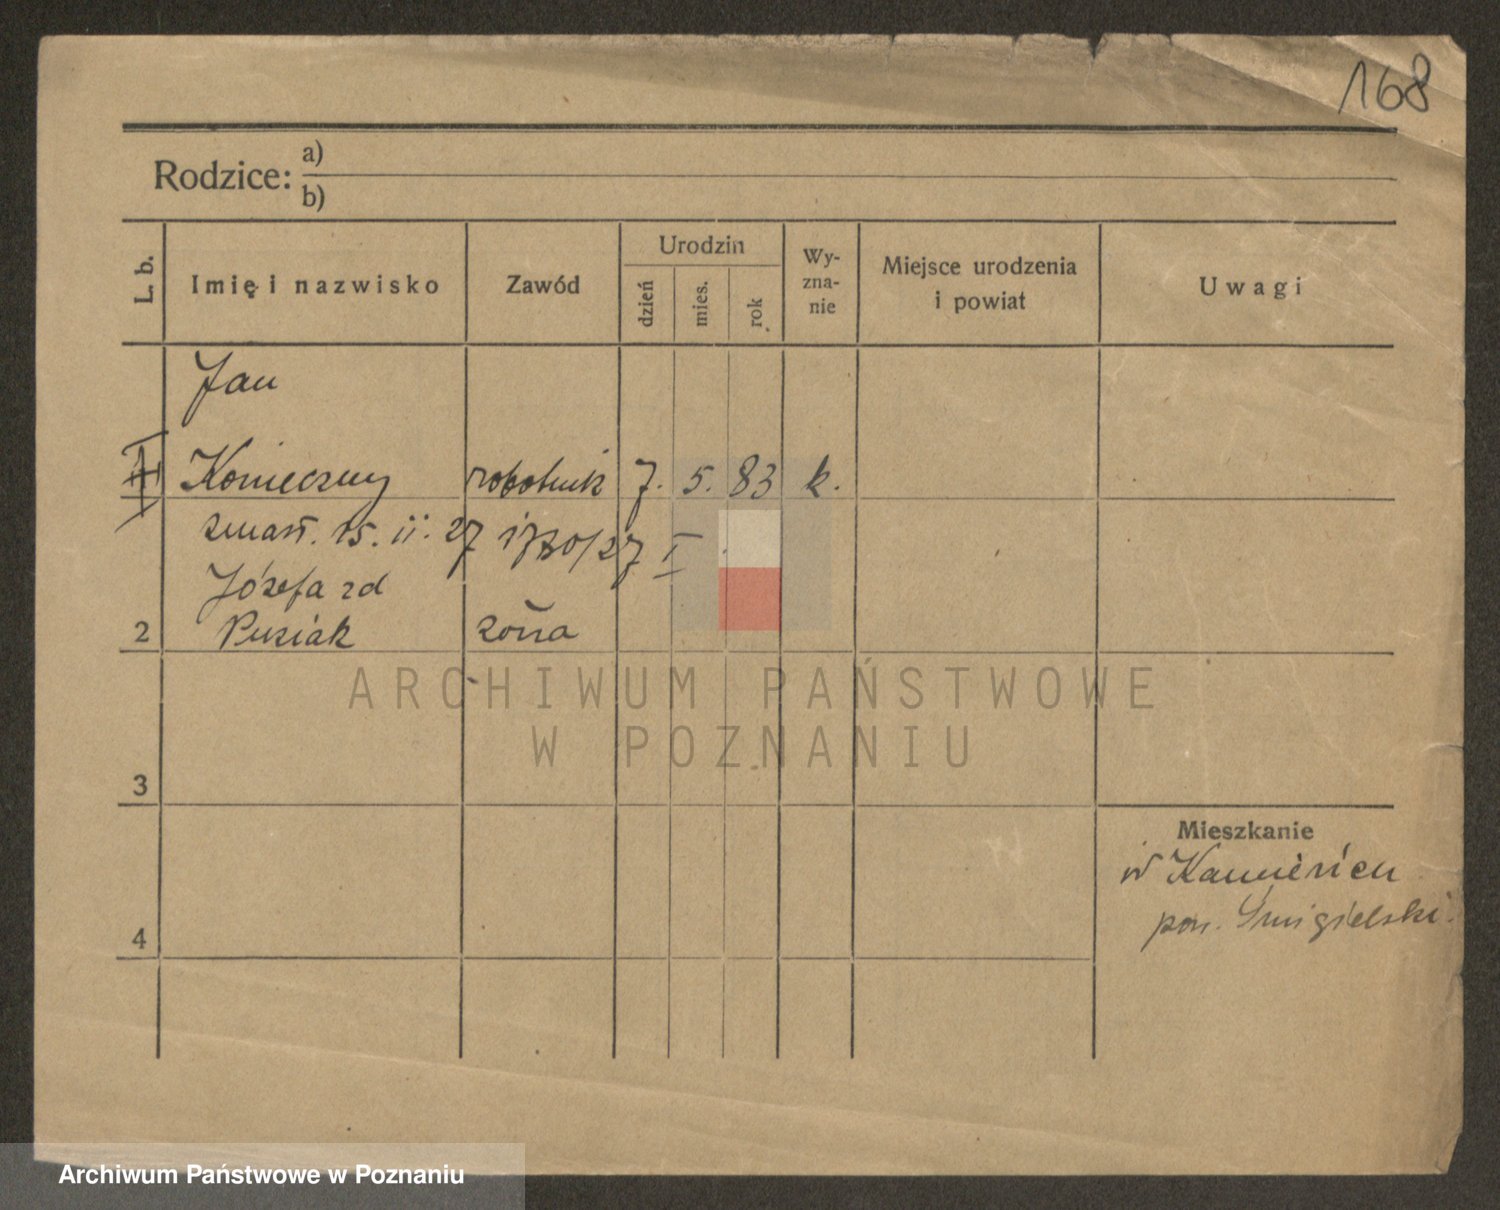 168
Rodzice: a)
b)
L. b.
Imię i nazwisko
Zawód
Urodzin
dzień
mies.
rok
Wy-
zna-
nie
Miejsce urodzenia
i powiat
Uwagi
Jan
Konieczny robotnik 7. 5. 83 k.
zmarł. 15. ii. 27 1780/27 I
Józefa zd
2 Puziak żona
3
Mieszkanie
w Kamieńcu
pow. Śmigielski.
4
ARCHIWUM PAŃSTWOWE
W POZNANIU
Archiwum Państwowe w Poznaniu